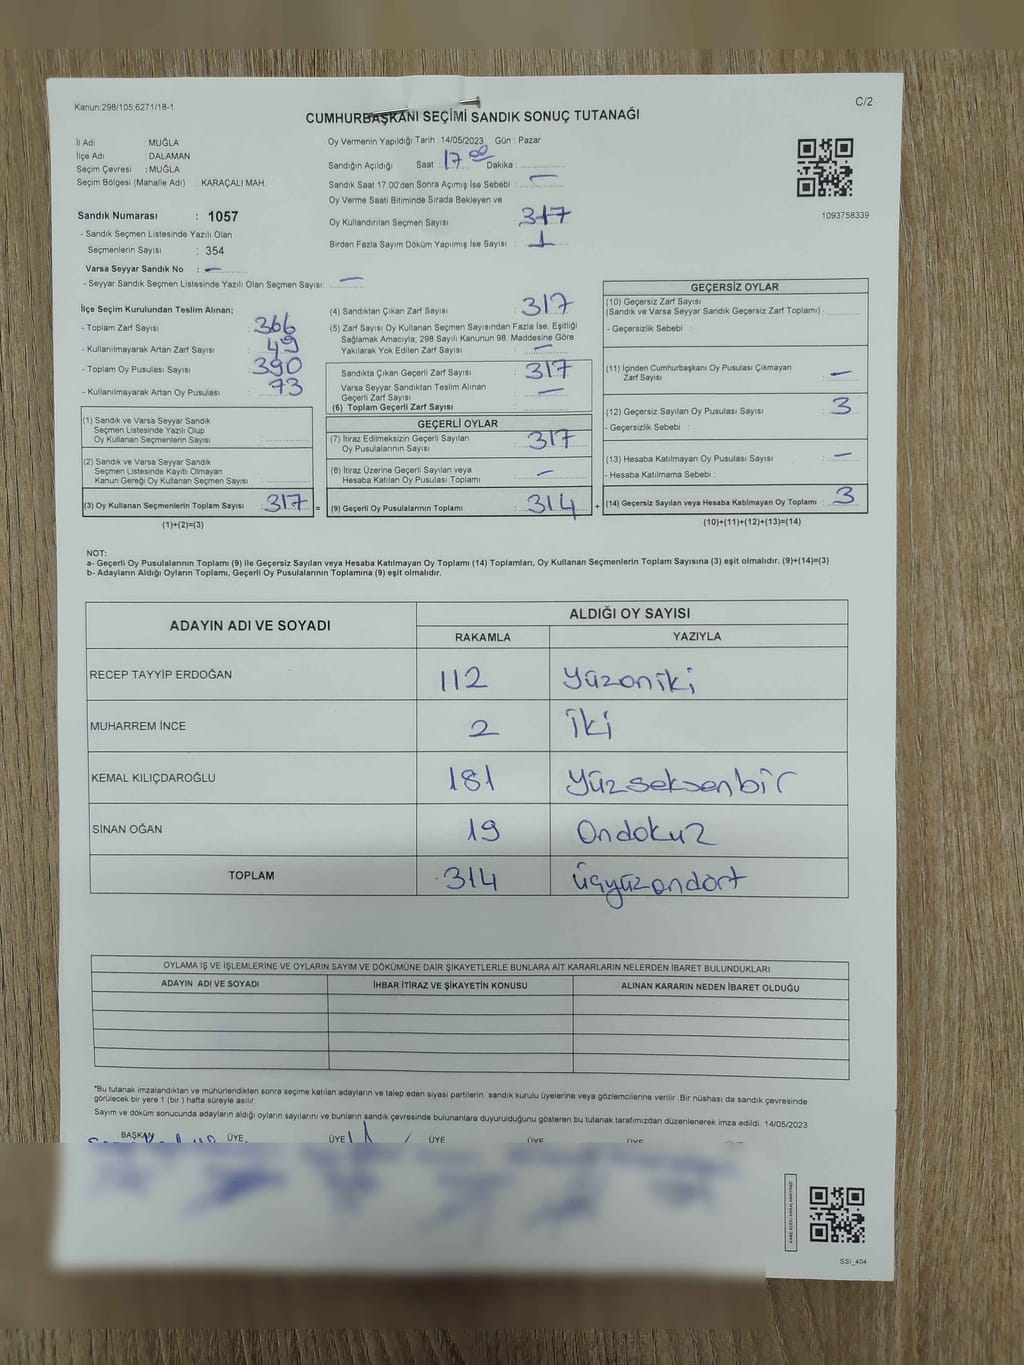 Kanun:298/105;6271/18-1
C/2
CUMHURBAŞKANI SEÇİMİ SANDIK SONUÇ TUTANAĞI
İl Adı : MUĞLA
İlçe Adı : DALAMAN
Seçim Çevresi : MUĞLA
Seçim Bölgesi (Mahalle Adı) : KARAÇALI MAH.
Sandık Numarası : 1057
- Sandık Seçmen Listesinde Yazılı Olan
Seçmenlerin Sayısı : 354
Varsa Seyyar Sandık No : —
- Seyyar Sandık Seçmen Listesinde Yazılı Olan Seçmen Sayısı: —
Oy Vermenin Yapıldığı Tarih : 14/05/2023 Gün : Pazar
Sandığın Açıldığı Saat : 17 00 Dakika :
Sandık Saat 17:00'den Sonra Açımış İse Sebebi : —
Oy Verme Saati Bitiminde Sırada Bekleyen ve
Oy Kullandırılan Seçmen Sayısı : 317
Birden Fazla Sayım Döküm Yapılmış İse Sayısı : 1
1093758339
İlçe Seçim Kurulundan Teslim Alınan;
- Toplam Zarf Sayısı : 366
- Kullanılmayarak Artan Zarf Sayısı : 49
- Toplam Oy Pusulası Sayısı : 390
- Kullanılmayarak Artan Oy Pusulası : 73
(1) Sandık ve Varsa Seyyar Sandık
Seçmen Listesinde Yazılı Olup
Oy Kullanan Seçmenlerin Sayısı :
(2) Sandık ve Varsa Seyyar Sandık
Seçmen Listesinde Kayıtlı Olmayan
Kanun Gereği Oy Kullanan Seçmen Sayısı :
(3) Oy Kullanan Seçmenlerin Toplam Sayısı : 317 =
(1)+(2)=(3)
(4) Sandıktan Çıkan Zarf Sayısı : 317
(5) Zarf Sayısı Oy Kullanan Seçmen Sayısından Fazla İse, Eşitliği
Sağlamak Amacıyla; 298 Sayılı Kanunun 98. Maddesine Göre
Yakılarak Yok Edilen Zarf Sayısı : —
Sandıkta Çıkan Geçerli Zarf Sayısı : 317
Varsa Seyyar Sandıktan Teslim Alınan
Geçerli Zarf Sayısı : —
(6) Toplam Geçerli Zarf Sayısı :
GEÇERLİ OYLAR
(7) İtiraz Edilmeksizin Geçerli Sayılan
Oy Pusulalarının Sayısı : 317
(8) İtiraz Üzerine Geçerli Sayılan veya
Hesaba Katılan Oy Pusulası Toplamı : —
(9) Geçerli Oy Pusulalarının Toplamı : 314 +
GEÇERSİZ OYLAR
(10) Geçersiz Zarf Sayısı
(Sandık ve Varsa Seyyar Sandık Geçersiz Zarf Toplamı) :
- Geçersizlik Sebebi :
(11) İçinden Cumhurbaşkanı Oy Pusulası Çıkmayan
Zarf Sayısı : —
(12) Geçersiz Sayılan Oy Pusulası Sayısı : 3
- Geçersizlik Sebebi :
(13) Hesaba Katılmayan Oy Pusulası Sayısı : —
- Hesaba Katılmama Sebebi :
(14) Geçersiz Sayılan veya Hesaba Katılmayan Oy Toplamı : 3
(10)+(11)+(12)+(13)=(14)
NOT:
a- Geçerli Oy Pusulalarının Toplamı (9) ile Geçersiz Sayılan veya Hesaba Katılmayan Oy Toplamı (14) Toplamları, Oy Kullanan Seçmenlerin Toplam Sayısına (3) eşit olmalıdır. (9)+(14)=(3)
b- Adayların Aldığı Oyların Toplamı, Geçerli Oy Pusulalarının Toplamına (9) eşit olmalıdır.
ADAYIN ADI VE SOYADI ALDIĞI OY SAYISI
RAKAMLA YAZIYLA
RECEP TAYYİP ERDOĞAN 112 Yüzoniki
MUHARREM İNCE 2 İki
KEMAL KILIÇDAROĞLU 181 Yüzseksenbir
SİNAN OĞAN 19 Ondokuz
TOPLAM 314 üçyüzondört
OYLAMA İŞ VE İŞLEMLERİNE VE OYLARIN SAYIM VE DÖKÜMÜNE DAİR ŞİKAYETLERLE BUNLARA AİT KARARLARIN NELERDEN İBARET BULUNDUKLARI
ADAYIN ADI VE SOYADI İHBAR İTİRAZ VE ŞİKAYETİN KONUSU ALINAN KARARIN NEDEN İBARET OLDUĞU
*Bu tutanak imzalandıktan ve mühürlendikten sonra seçime katılan adayların ve talep eden siyasi partilerin sandık kurulu üyelerine veya gözlemcilerine verilir. Bir nüshası da sandık çevresinde
görülecek bir yere 1 (bir ) hafta süreyle asılır.
Sayım ve döküm sonucunda adayların aldığı oyların sayılarını ve bunların sandık çevresinde bulunanlara duyurulduğunu gösteren bu tutanak tarafımızdan düzenlenerek imza edildi. 14/05/2023
BAŞKAN ÜYE ÜYE ÜYE ÜYE ÜYE
SSI_404